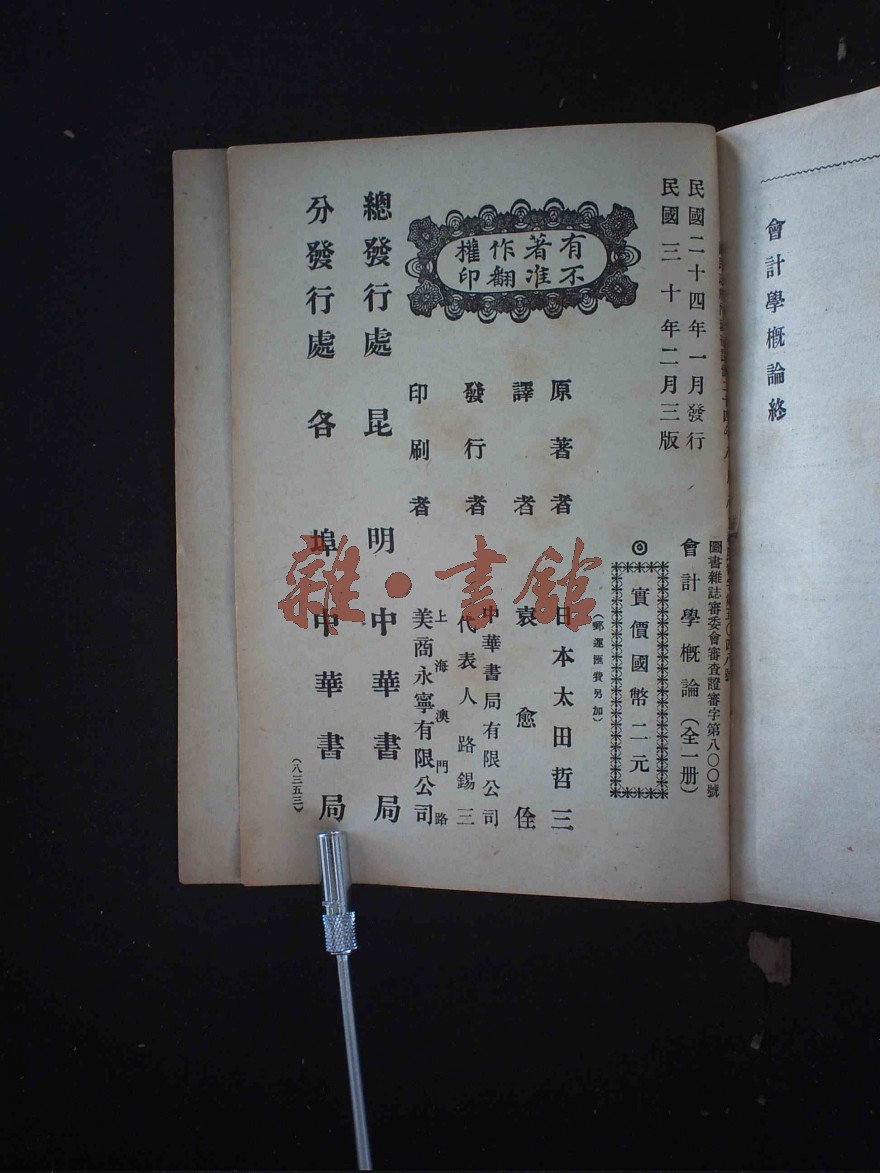 會計學概論終
圖書雜誌審委會審查證審字第八〇〇號
民國二十四年一月發行
民國三十年二月三版
會計學概論（全一册）
◎實價國幣二元
（郵運匯費另加）
有著作權
不准翻印
原著者 日本太田哲三
譯者 袁愈佺
發行者 中華書局有限公司
代表人路錫三
印刷者 上海澳門路
美商永寧有限公司
總發行處 昆明中華書局
分發行處 各埠中華書局
（八三五三）
雜·書館